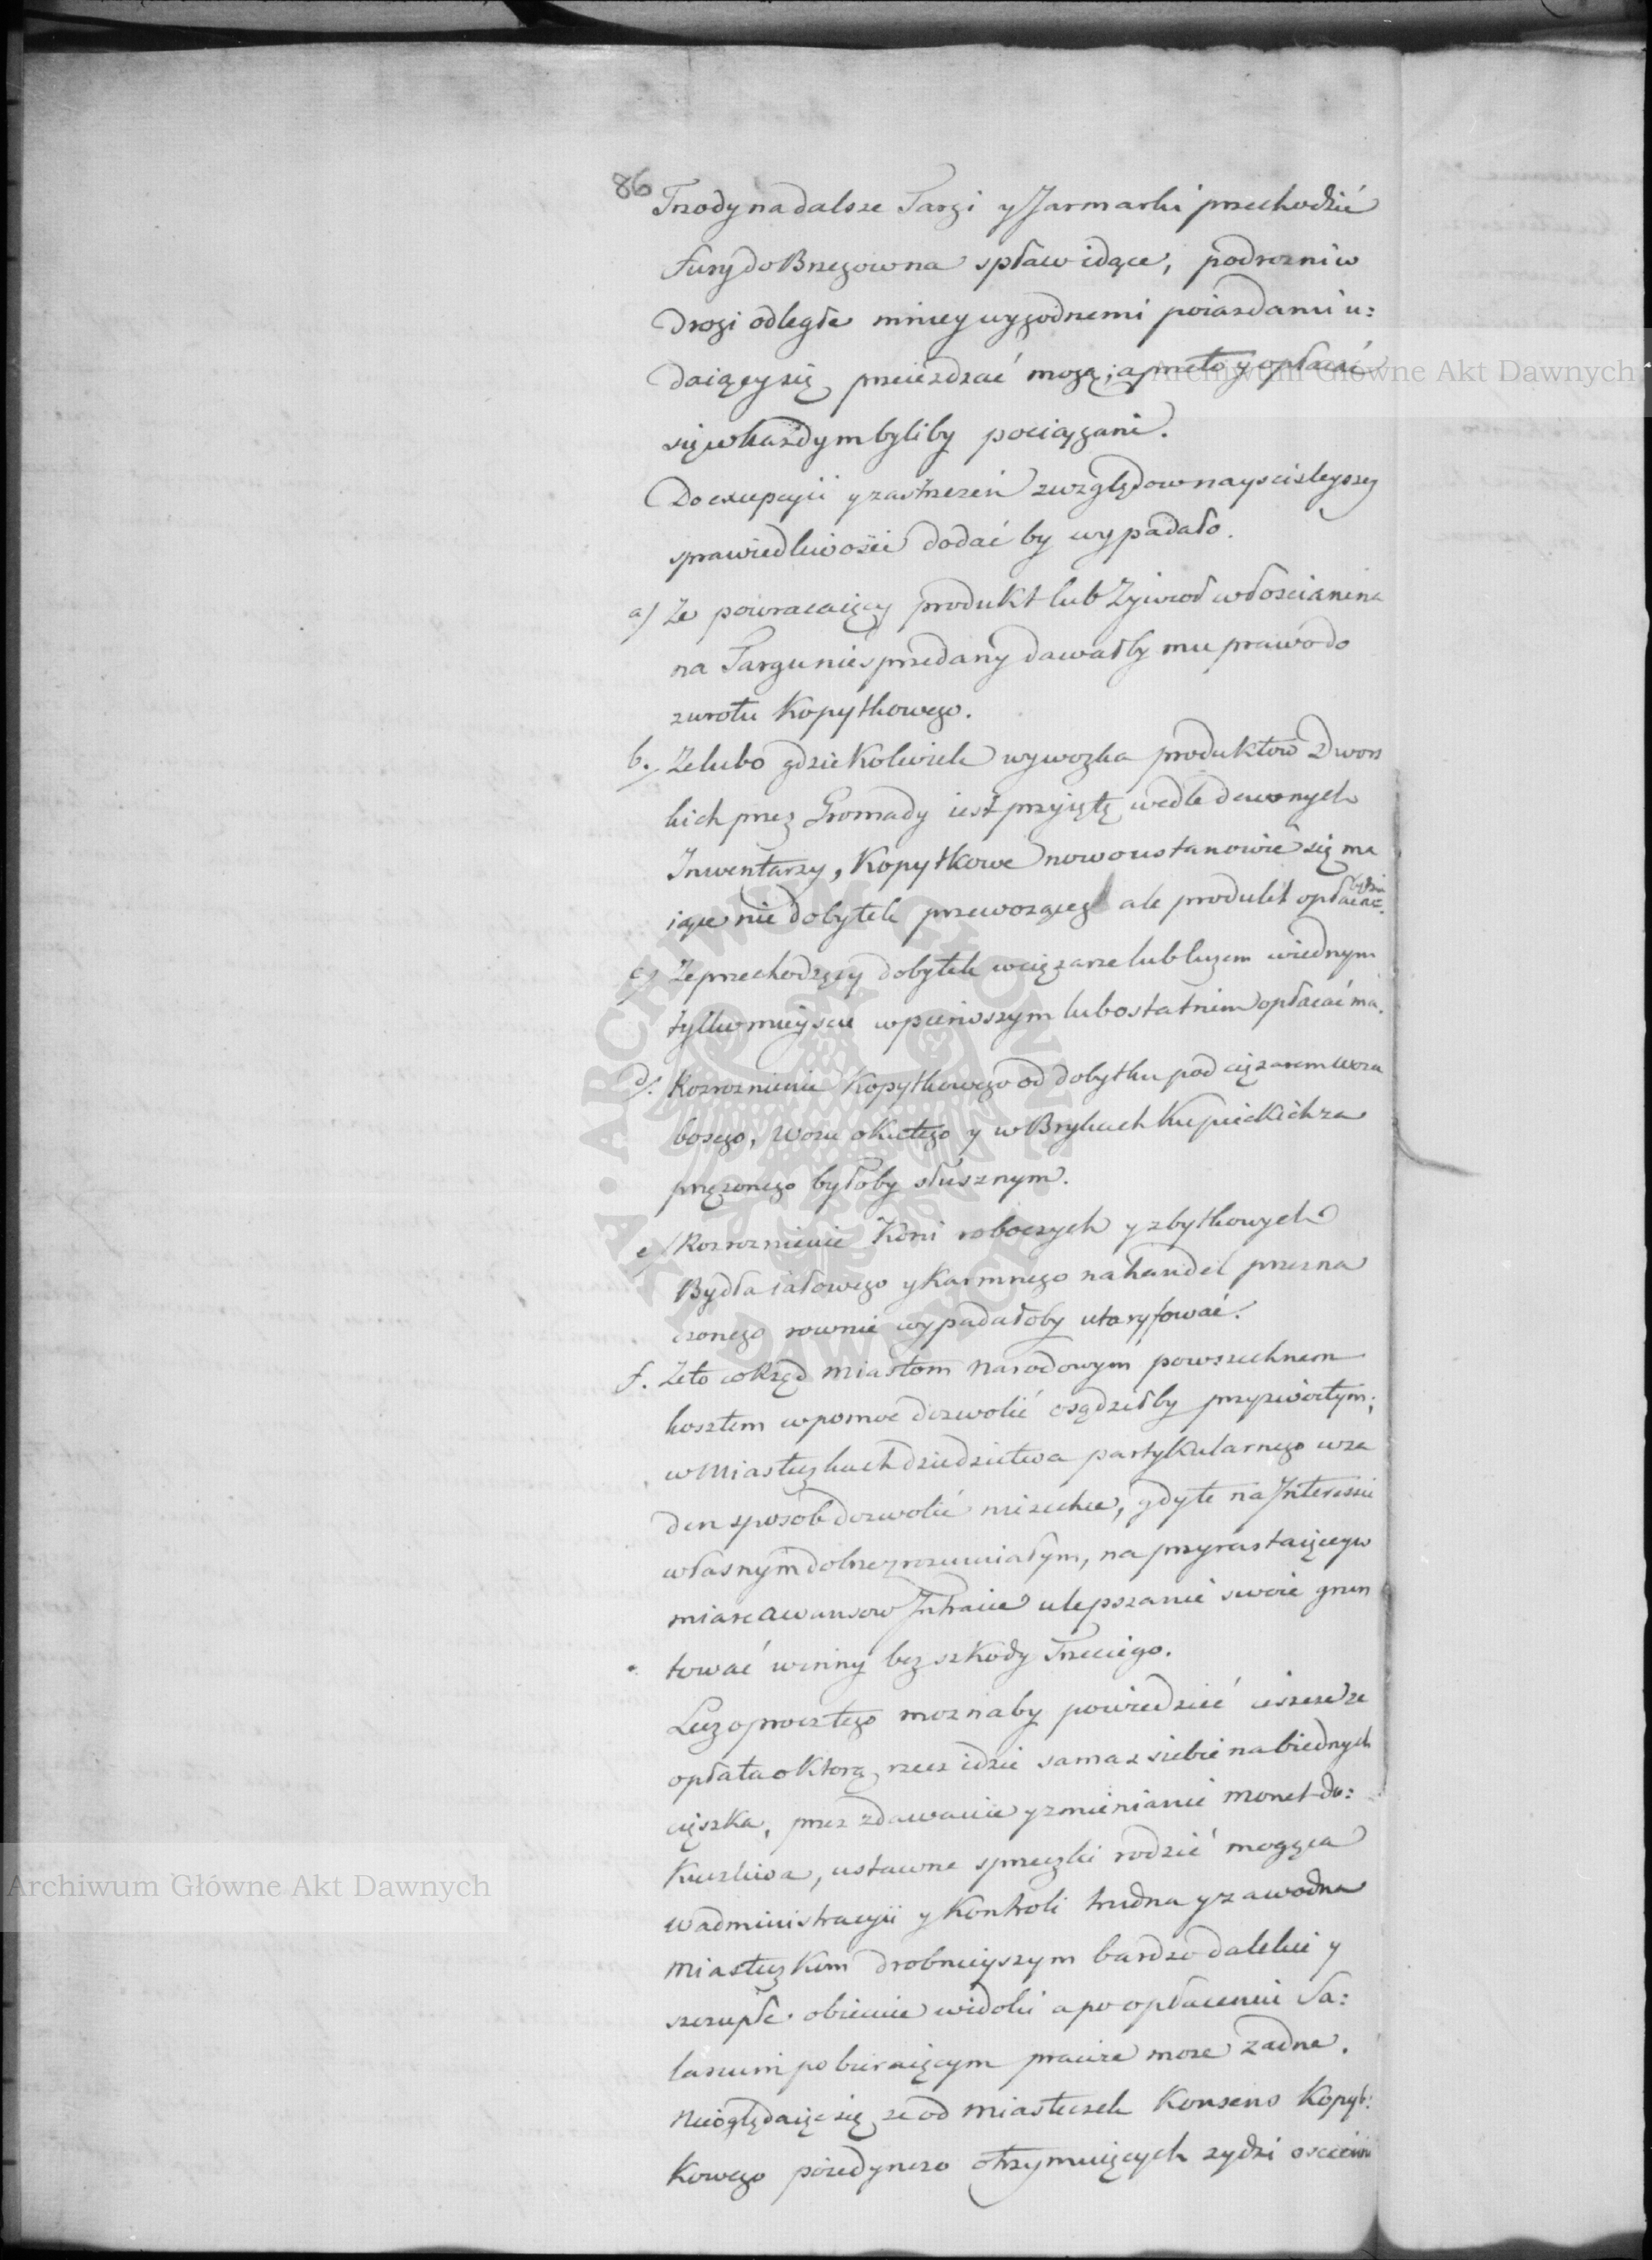 86
Trzody na dalsze Targi y Jarmarki przechodzić
fury do Brzegow na spław idące, podrozni w
drogi odległe mniey wygodnemi poiazdami u:
daiący się, przeieżdzać mogą; a przeto y opłacać
się w każdym byliby pociągani.
Do excepcyii y zastrzezeń z względow nayscisleyszey
sprawiedliwości dodać by wypadało.
a) Ze powracaiący produkt lub Zywioł włoscianina
na Targu niesprzedany dawałby mu prawo do
zwrotu Kopytkowego.
b. Ze lubo gdzie kolwiek wywozka produktow Dwors
kich przez Gromady iest przyiętą wedle dawnych
Inwentarzy, Kopytkowe nowo ustanowić się ma
iące nie dobytek przewozący ale produkt opłacać będzie.
c) Ze przechodzący dobytek w ciężarze lub luzem w iednym
tylko mieyscu w pierwszym lub ostatnim opłacać ma.
d). Rozroznienie Kopytkowego od dobytku pod ciężarem woza
bosego, wozu okutego y w Brykach Kupieckich za
przężonego byłoby słusznym.
e) Rozroznienie Koni roboczych y zbytkowych
Bydła iałowego y Karmnego na handel przezna
czonego rownie wypadałoby utaryfować.
f. Ze to co Rząd miastom Narodowym powszechnem
kosztem w pomoc dozwolić osądziłby przyzwoitym;
w Miasteczkach dziedzictwa partykularnego w ża
den sposob dozwolić niezechce, gdy te na Interessie
własnym dobrze zrozumiałym, na przyrastaiącey w
miarę awansow Intracie ulepszanie swoie grun
tować winny bez szkody Trzeciego.
Lecz oprocz tego moznaby powiedzieć ieszcze że
opłata o ktorą rzecz idzie sama z siebie na biednych
ciężka, przez zdawanie y zmienianie monet do:
kuczliwa, ustawne sprzeczki rodzić mogąca
w administracyii y Kontroli trudna y zawodna
miasteczkom drobnieyszym bardzo dalekie y
szczupłe obiecuie widoki a po opłaceniu Sa:
lariow pobieraiącym prawie moze żadne.
Nieoglądaiąc się że od miasteczek Konsens Kopyt:
kowego poiedynczo otrzymuiących zydzi